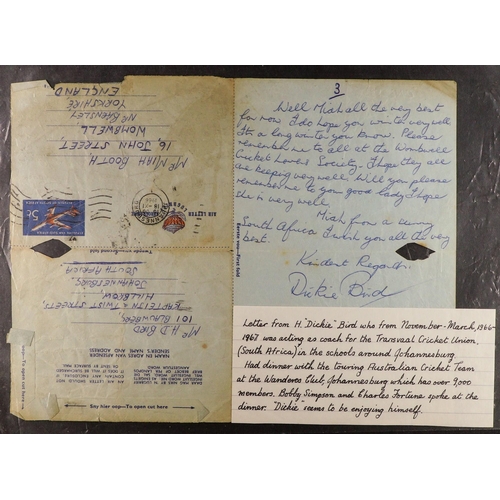 3
Well Miah all the very best
for now I do hope you winter very well
It's a long winter you know. Please
remember me to all at the Wombwell
Cricket Lovers Society. I hope they all
are keeping very well. Will you please
remember me to your good lady I hope
she is very well.
Miah from a sunny
South Africa I wish you all the very
best.
Kindest Regards.
Dickie Bird
Mr MIAH BOOTH
16, JOHN STREET
WOMBWELL
Nr BARNSLEY
YORKSHIRE
ENGLAND
5c
AIR LETTER
Mr H D BIRD
101 BLAUWBERG,
KAPTEIJN & TWIST STREETS,
HILLBROW,
JOHANNESBURG
SOUTH AFRICA
NAAM EN ADRES VAN AFSENDER
SENDER'S NAME AND ADDRESS
AN AIR LETTER SHOULD NOT
CONTAIN ANY ENCLOSURE
Sny hier oop—To open cut here
Letter from H. "Dickie" Bird who from November - March, 1966-
1967 was acting as coach for the Transvaal Cricket Union,
(South Africa) in the schools around Johannesburg.
Had dinner with the touring Australian Cricket Team
at the Wanderers Club, Johannesburg which has over 9,000
members. Bobby Simpson and Charles Fortune spoke at the
dinner. "Dickie" seems to be enjoying himself.